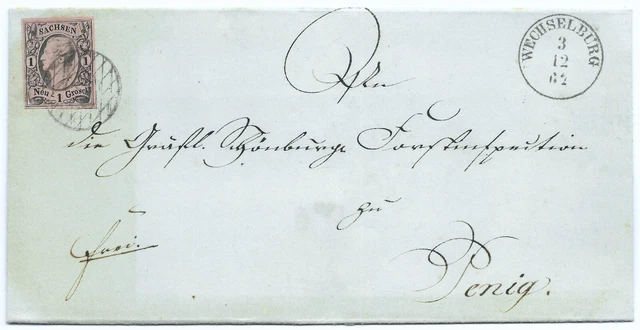 SACHSEN
1 1
Neu 1 Grosch
WECHSELBURG
3
12
62
An
die Gräfl. Schönburg. Forstinspection
zu
frei.
Penig.